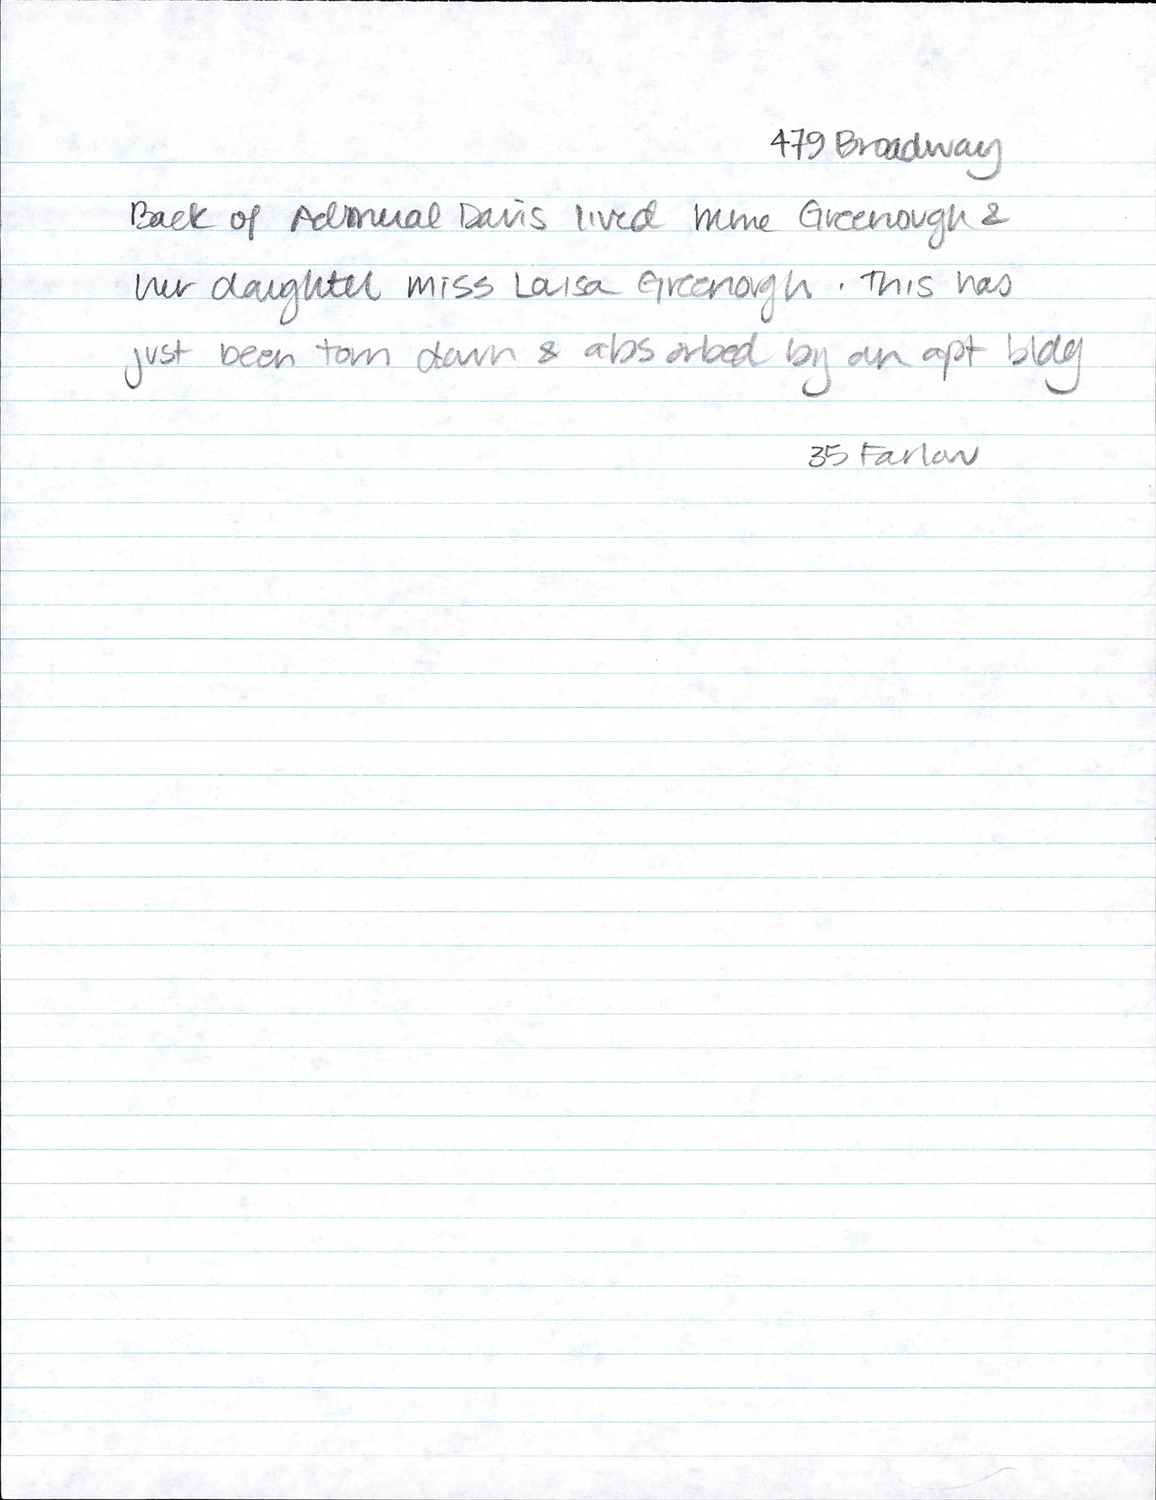 479 Broadway
Back of Admiral Davis lived Mme Greenough &
her daughter Miss Louisa Greenough. This has
just been torn down & absorbed by an apt bldg
35 Farlow